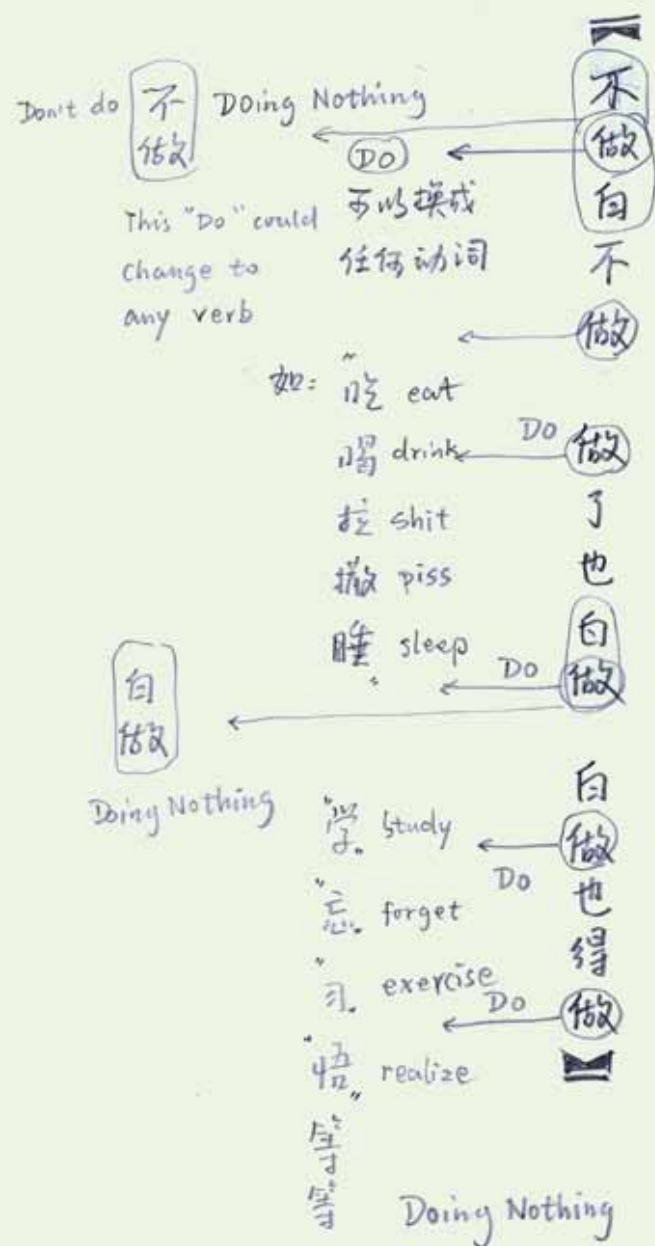 【不做白不做做了也白做 白做也得做】
Don't do
不做
Doing Nothing
DO
可以换成
任何动词
This "Do" could
change to
any verb
如：
"吃 eat
喝 drink
拉 shit
撒 piss
睡" sleep
Do
Do
白做
Doing Nothing
"学" study
"忘" forget
"习" exercise
"悟" realize
等等
Do
Do
Doing Nothing